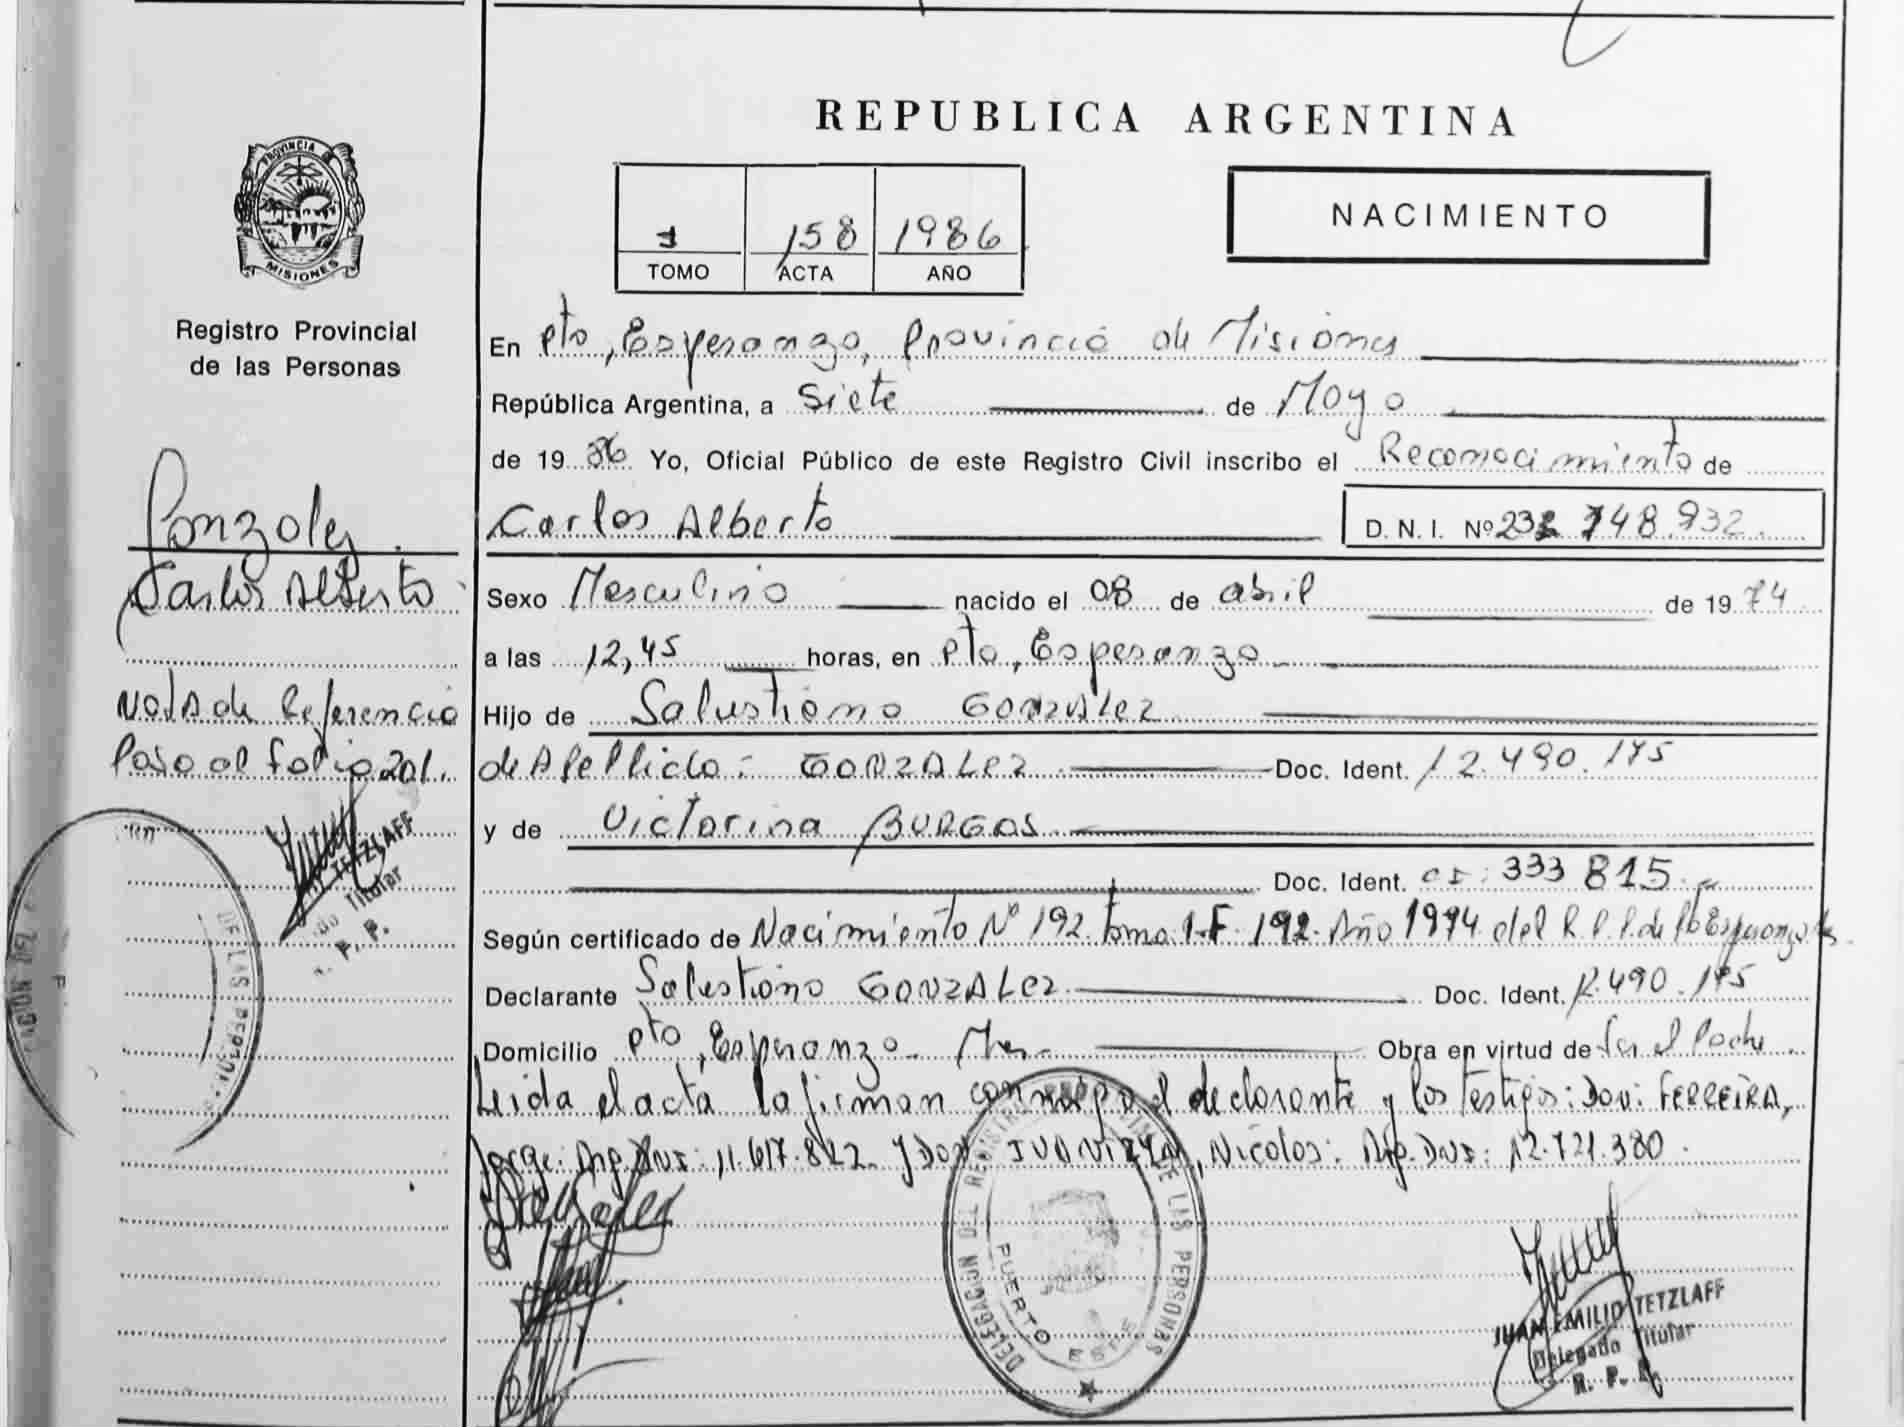 REPUBLICA ARGENTINA
PROVINCIA DE
MISIONES
Registro Provincial
de las Personas
1 158 1986
TOMO ACTA AÑO
NACIMIENTO
En Pto, Esperanza, Provincia de Misiones
República Argentina, a Siete de Mayo
de 1986 Yo, Oficial Público de este Registro Civil inscribo el Reconocimiento de
Carlos Alberto D. N. I. Nº 748.932
Gonzalez
Carlos Alberto
Sexo Masculino nacido el 08 de abril de 1974
a las 12,45 horas, en Pto, Esperanza
Nota de Referencia
Paso al folio 201.
Hijo de Salustiano GONZALEZ
de Apellido: GONZALEZ Doc. Ident. 12.490.175
y de Victorina BURGOS
TETZLAFF
Titular
R. P.
Doc. Ident. CI: 333 815.
Según certificado de Nacimiento Nº 192 tomo 1-F. 192. Año 1974 del R.P.P. de Pto Esperanza
Declarante Salustiano GONZALEZ Doc. Ident. 12.490.175
Domicilio Pto, Esperanza Mnes Obra en virtud de Ser el Padre
Leida el acta la firman conmigo el declarante y los testigos: Don: FERREIRA,
Jorge: Arg. DNI: 11.617.822 y Don Nicolas: Arg. DNI: 12.721.380.
DE LAS PERSONAS
DELEGACION DEL REGISTRO DE LAS PERSONAS
PUERTO ESPE
JUAN EMILIO TETZLAFF
Delegado Titular
R. P. P.